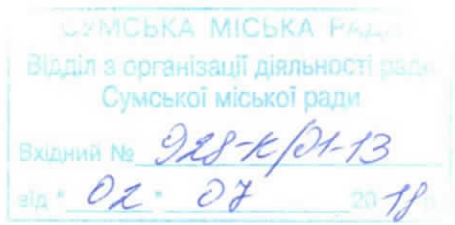 СУМСЬКА МІСЬКА РАДА
Відділ з організації діяльності ради
Сумської міської ради
Вхідний № 928-К/01-13
від " 02 " 07 2018 р.